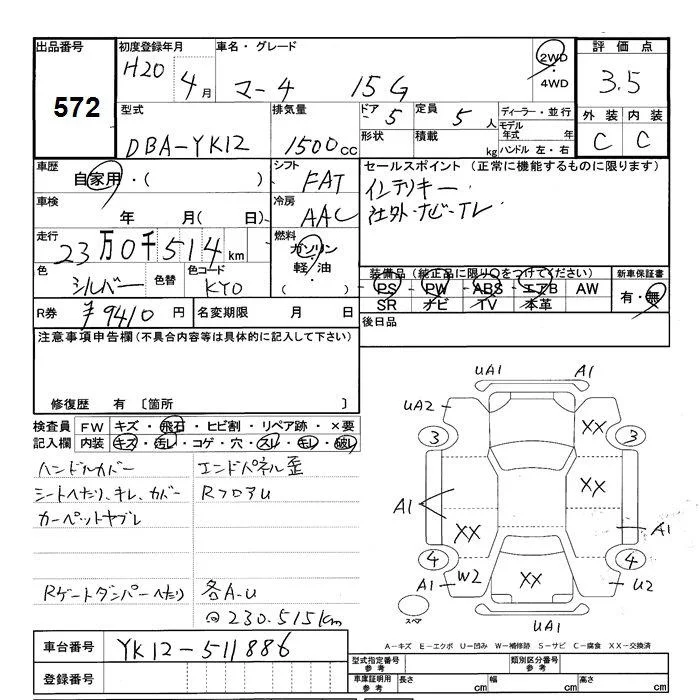 出品番号 初度登録年月 車名・グレード 2WD ・ 4WD 評価点
572
H20 4月 マーチ 15G 3.5
型式 排気量 ドア 5 定員 5人 ディーラー・並行 外装 内装
DBA-YK12 1500cc 形状 積載 kg モデル年式 年 ハンドル 左・右 C C
車歴 自家用・( ) シフト FAT セールスポイント (正常に機能するものに限ります)
車検 年 月(日) 冷房 AAC インテリキー・
社外ナビ・TV
走行 23万0千514km 燃料 ガソリン・軽油・( )
色 シルバー 色替 色コード KY0
装備品 (純正品に限り○をつけてください) 新車保証書
PS・PW・ABS・エアB AW 有・無
SR ナビ TV 本革
R券 ¥9410円 名変期限 月 日 後日品
注意事項申告欄(不具合内容等は具体的に記入して下さい)
修復歴 有 〔箇所 〕
検査員 FW キズ・飛石・ヒビ割・リペア跡・×要
記入欄 内装 キズ・汚レ・コゲ・穴・スレ・キレ・破レ
ハンドルカバー エンドパネル歪
シートヘタリ、キレ、カバー RフロアU
カーペットヤブレ
Rゲートダンパーヘタリ 各A-U
@230.515km
UA1 A1
UA2 XX
3 3
XX
A1 XX A1
4 4
A1 W2 XX U2
スペア UA1
A-キズ E-エクボ U-凹み W-補修跡 S-サビ C-腐食 XX-交換済
車台番号 YK12-511886
型式指定番号 参考 類別区分番号 参考
登録番号 車庫証明用 参考 長さ cm 幅 cm 高さ cm